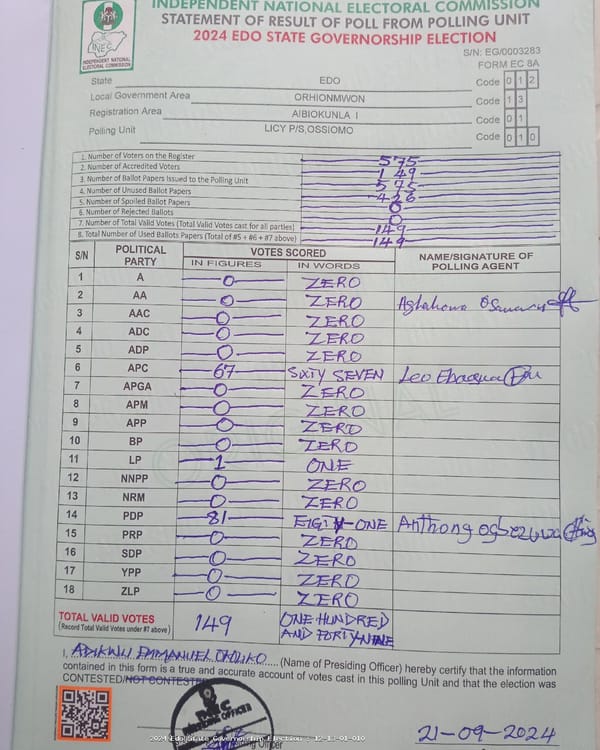 INDEPENDENT NATIONAL ELECTORAL COMMISSION
STATEMENT OF RESULT OF POLL FROM POLLING UNIT
2024 EDO STATE GOVERNORSHIP ELECTION
INEC
INDEPENDENT NATIONAL
ELECTORAL COMMISSION
S/N: EG/0003283
FORM EC 8A
State EDO Code 0 1 2
Local Government Area ORHIONMWON Code 1 3
Registration Area AIBIOKUNLA I Code 0 1
Polling Unit LICY P/S,OSSIOMO Code 0 1 0
1. Number of Voters on the Register 575
2. Number of Accredited Voters 149
3. Number of Ballot Papers Issued to the Polling Unit 575
4. Number of Unused Ballot Papers 426
5. Number of Spoiled Ballot Papers 0
6. Number of Rejected Ballots 0
7. Number of Total Valid Votes (Total Valid Votes cast for all parties) 149
8. Total Number of Used Ballots Papers (Total of #5 + #6 + #7 above) 149
S/N POLITICAL PARTY VOTES SCORED NAME/SIGNATURE OF POLLING AGENT
IN FIGURES IN WORDS
1 A 0 ZERO
2 AA 0 ZERO
3 AAC 0 ZERO
4 ADC 0 ZERO
5 ADP 0 ZERO
6 APC 67 SIXTY SEVEN Leo
7 APGA 0 ZERO
8 APM 0 ZERO
9 APP 0 ZERO
10 BP 0 ZERO
11 LP 1 ONE
12 NNPP 0 ZERO
13 NRM 0 ZERO
14 PDP 81 EIGTY-ONE Anthony
15 PRP 0 ZERO
16 SDP 0 ZERO
17 YPP 0 ZERO
18 ZLP 0 ZERO
TOTAL VALID VOTES 149 ONE HUNDRED
(Record Total Valid Votes under #7 above) AND FORTY-NINE
I, ADIKWU EMMANUEL OKOLIKO (Name of Presiding Officer) hereby certify that the information
contained in this form is a true and accurate account of votes cast in this polling Unit and that the election was
CONTESTED/NOT CONTESTED
INEC
21-09-2024
2024 Edo State Governorship Election : 12-13-01-010
Officer